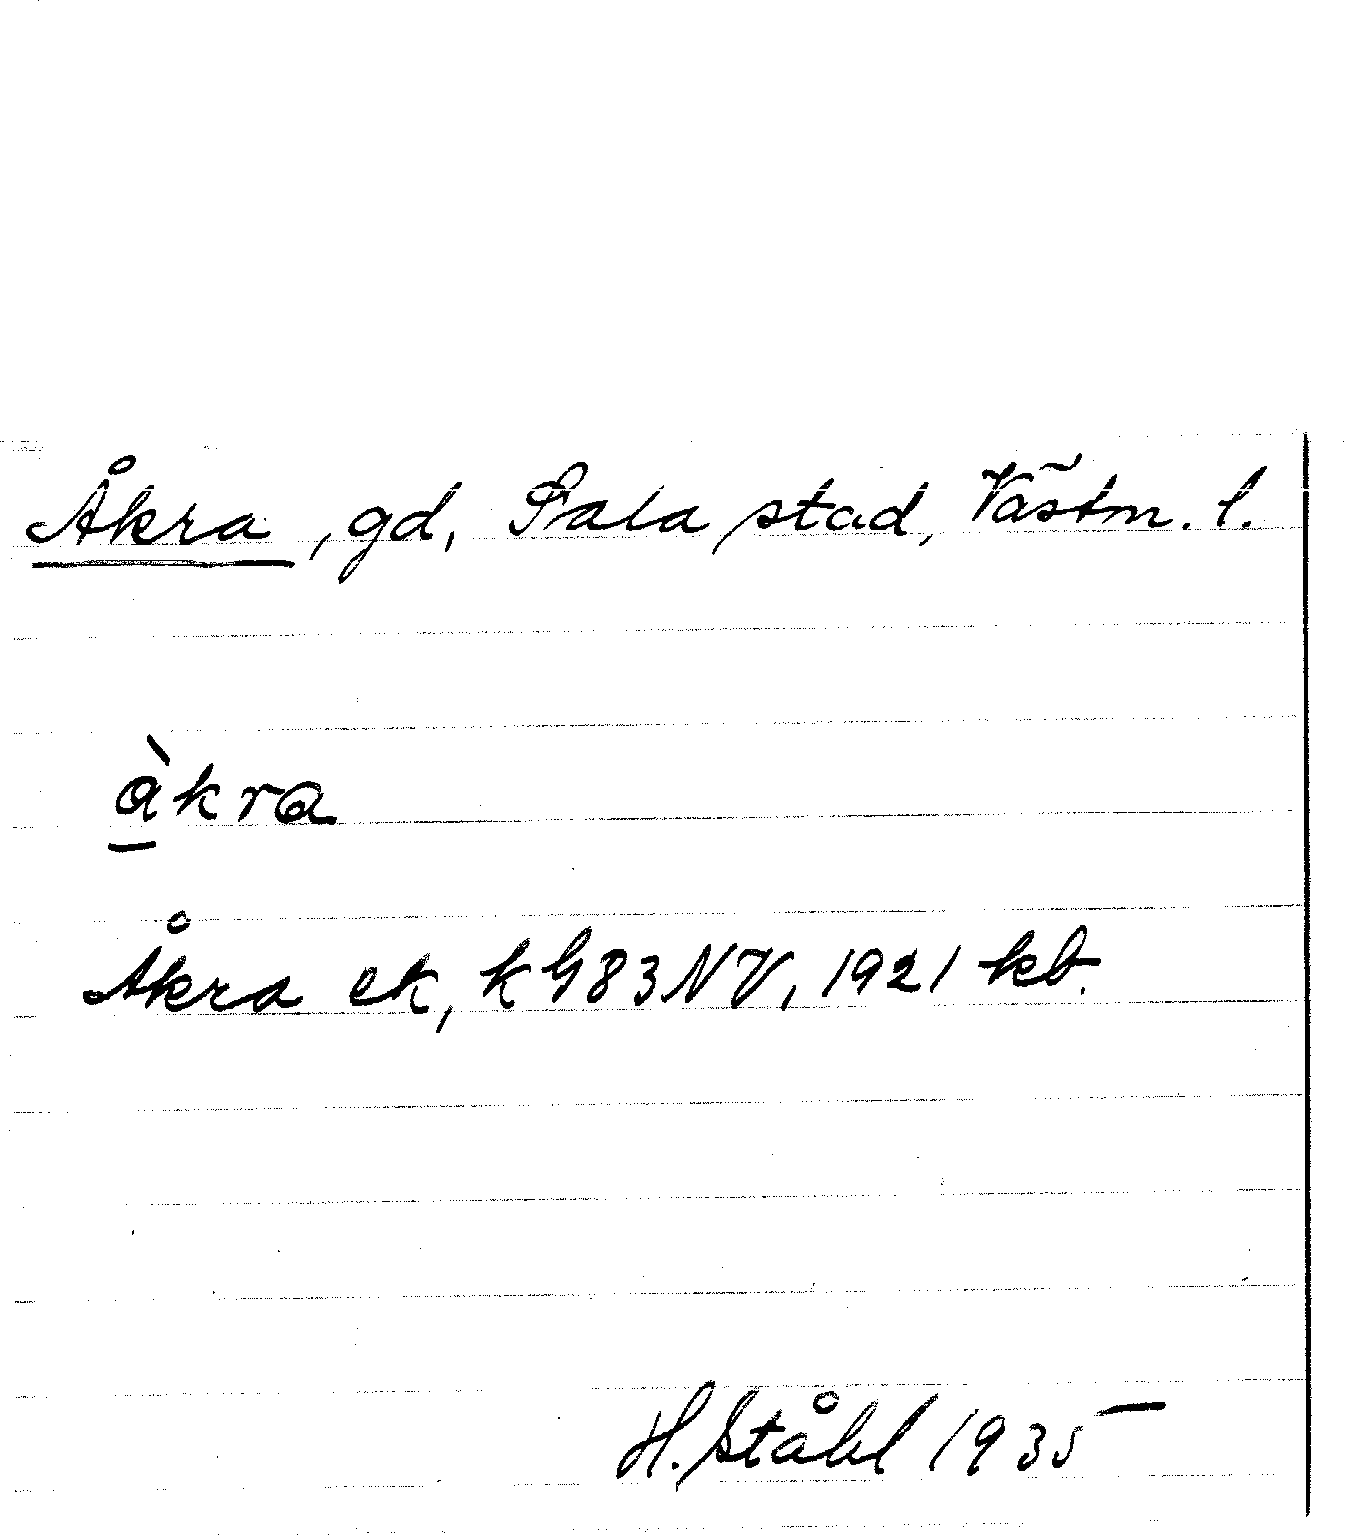 Åkra, gd, Sala stad, Västm. l.
àkra
Åkra ek, k G83NV, 1921 kb.
H. Ståhl 1935